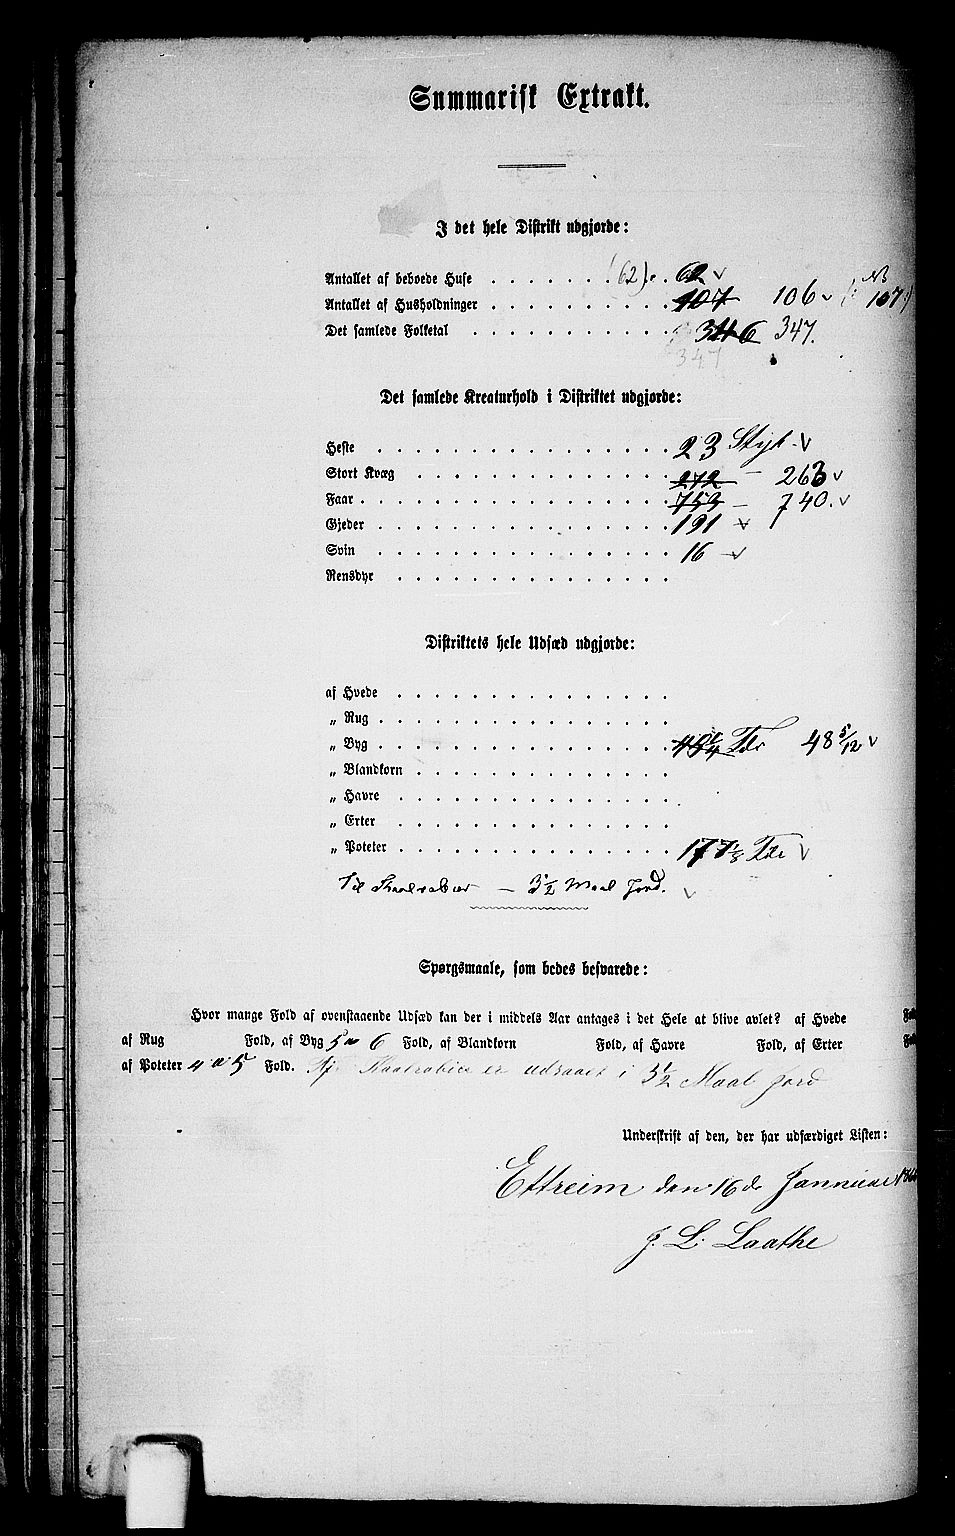 Summarisk Extrakt.
I det hele Distrikt udgjorde:
Antallet af beboede Huse (62). 62
Antallet af Husholdninger 107 106 NB (: 107 :)
Det samlede Folketal 346 347.
347
Det samlede Kreaturhold i Distriktet udgjorde:
Heste 23 Stys.
Stort Kvæg 272 — 263
Faar 753 — 740.
Gjeder 191
Svin 16
Rensdyr
Distriktets hele Udsæd udgjorde:
af Hvede
„ Rug
„ Byg Tdr 48 5/12
„ Blandkorn
„ Havre
„ Erter
„ Poteter 177 Tdr
Til — 3½ Maal Jord.
Spørgsmaale, som bedes besvarede:
Hvor mange Fold af ovenstaaende Udsæd kan der i middels Aar antages i det Hele at blive avlet? af Hvede
af Rug Fold, af Byg 5 a 6 Fold, af Blandkorn Fold, af Havre Fold, af Erter
af Poteter 4 a 5 Fold. er udsaaet i 3½ Maal Jord
Underskrift af den, der har udfærdiget Listen:
Ettreim den 16de
J. L. Laathe